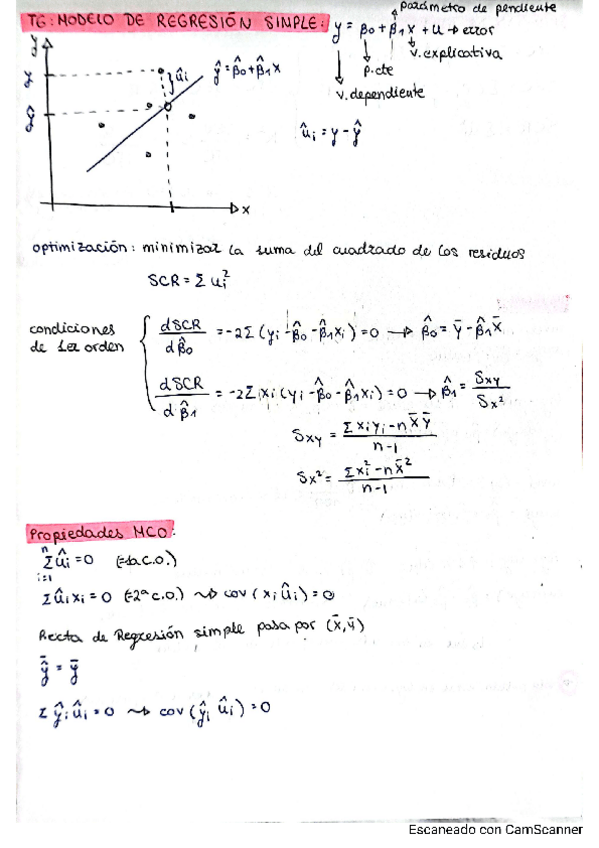 parámetro de pendiente
T6: MODELO DE REGRESIÓN SIMPLE: y = β₀ + β₁x + u → error
v. explicativa
p. cte
v. dependiente
y
y
ŷ
ûi
ŷ = β̂₀ + β̂₁x
x
ûi = y - ŷ
optimización: minimizar la suma del cuadrado de los residuos
SCR = Σ ui²
condiciones de 1er orden
dSCR/dβ̂₀ = -2Σ (yi - β̂₀ - β̂₁xi) = 0 → β̂₀ = ȳ - β̂₁x̄
dSCR/dβ̂₁ = -2Σ xi (yi - β̂₀ - β̂₁xi) = 0 → β̂₁ = Sxy/Sx²
Sxy = (Σ xiyi - n x̄ ȳ)/(n-1)
Sx² = (Σ xi² - n x̄²)/(n-1)
Propiedades MCO:
Σⁿᵢ₌₁ ûi = 0 (=1a c.o.)
Σ ûi xi = 0 (=2ª c.o.) ⇝ cov (xi ûi) = 0
Recta de Regresión simple pasa por (x̄, ȳ)
ŷ̄ = ȳ
Σ ŷi ûi = 0 ⇝ cov (ŷi ûi) = 0
Escaneado con CamScanner